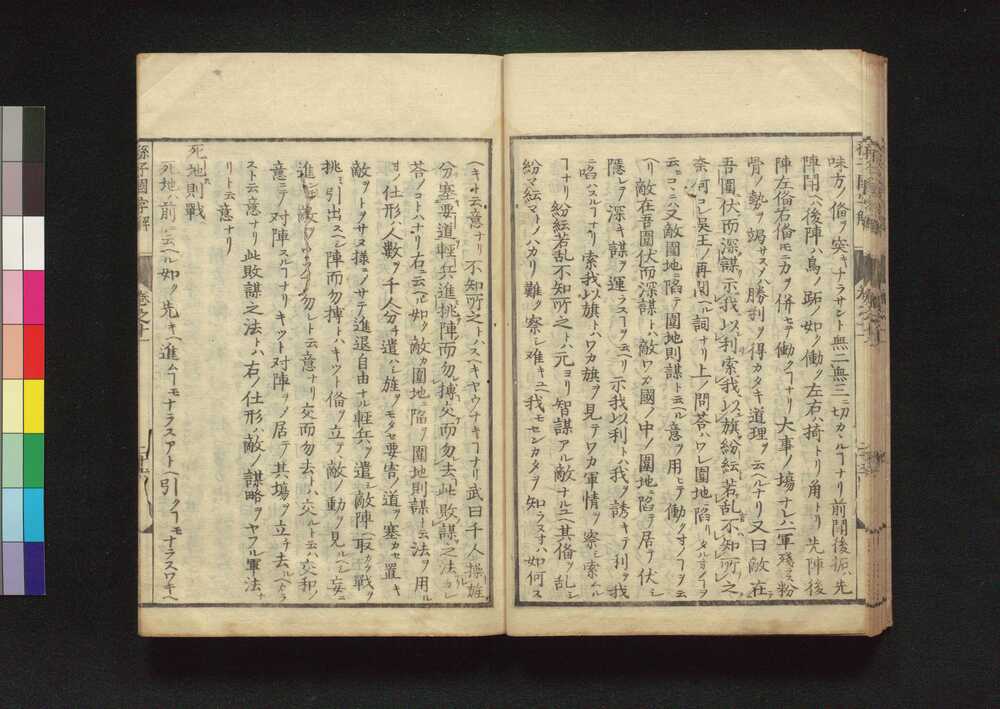 味方ノ備ヲ突キナラサント無二無三ニ切カヽルコナリ前鬪後拒ハ先
陣鬪ヘハ後陣ハ鳥ノ跡ノ如ク働ク左右ハ掎トリ角トリ先陣後
陣左備右備モ二カヲ併セテ働クコナリ大事ノ場ナレハ一軍殘ラス粉
骨ノ勢ヲ竭サスメハ勝利ヲ得カタキ道理ヲ云ヘルナリ又曰敵在
吾圍伏而深謀示我以利索我以旗紛紜若乱不知所之
奈何コレ呉王ノ再問ヘル詞ナリ上ノ問答ハワレ圍地ニ陷リタルトキノコヲ
云ヒコヽニハ又敵圍地ニ陷テ圍地則謀ト云ヘル意ヲ用ヒテ働クトキノコヲ云
ヘリ敵在吾圍伏而深謀トハ敵ワカ國ノ中ノ圍地ニ陷テ居ヲ伏シ
隱レテ深キ謀ヲ運ラスコヲ云ヘリ示我以利トハ我ヲ誘キテ利ヲ我
ニ啗ハスルコナリ索我以旗トハワカ旗ヲ見テワカ軍情ヲ察シ索ムル
コナリ紛紜若乱不知所之トハ元ヨリ智謀アル敵ナルユヘ其備ヲ乱シ
紛マ紜マトノハカリ難ク察シ难キユヘ我モセンカタヲ知ラスサハ如何ス
ヘキヤト云意ナリ不知所之トハスヘキヤウナキコナリ武曰千人操旌
分塞要道軽兵進挑陣而勿搏交而勿去此敗謀之法コレ
荅ノコトハナリ右ニ云ヘル如ク敵カ圍地ニ陷ヲ圍地則謀ト云法ヲ用ル
トキノ仕形ハ人數ヲ千人分チ遣ハシ旌ヲモタセ要害ノ道ヲ塞カセ置キ
敵ヲトヲサヌ様ニノサテ進退自由ナル軽兵ヲ遣ニ敵陣ヘ取カヲ戰ヲ
挑ミ引出スヘシ陣而勿搏トハキツト備ヲ立テ敵ノ動ヲ見ルヘシ妄ニ
進テ敵ヲウツコ勿レト云意ナリ交而勿去トハ交ルト云ハ交和ノ
意ニテ対陣スルコナリキツト対陣ヲノ居テ其塲ヲ立チ去ルヘカラ
スト云意ナリ此敗謀之法トハ右ノ仕形ハ敵ノ謀略ヲヤフル軍法ナ
リト云意ナリ
死地則戰
死地ハ前ニ云ヘル如ク先キヘ進ムコモナラスアトヘ引クコモナラスワキヘ
孫子國字解
卷之十一